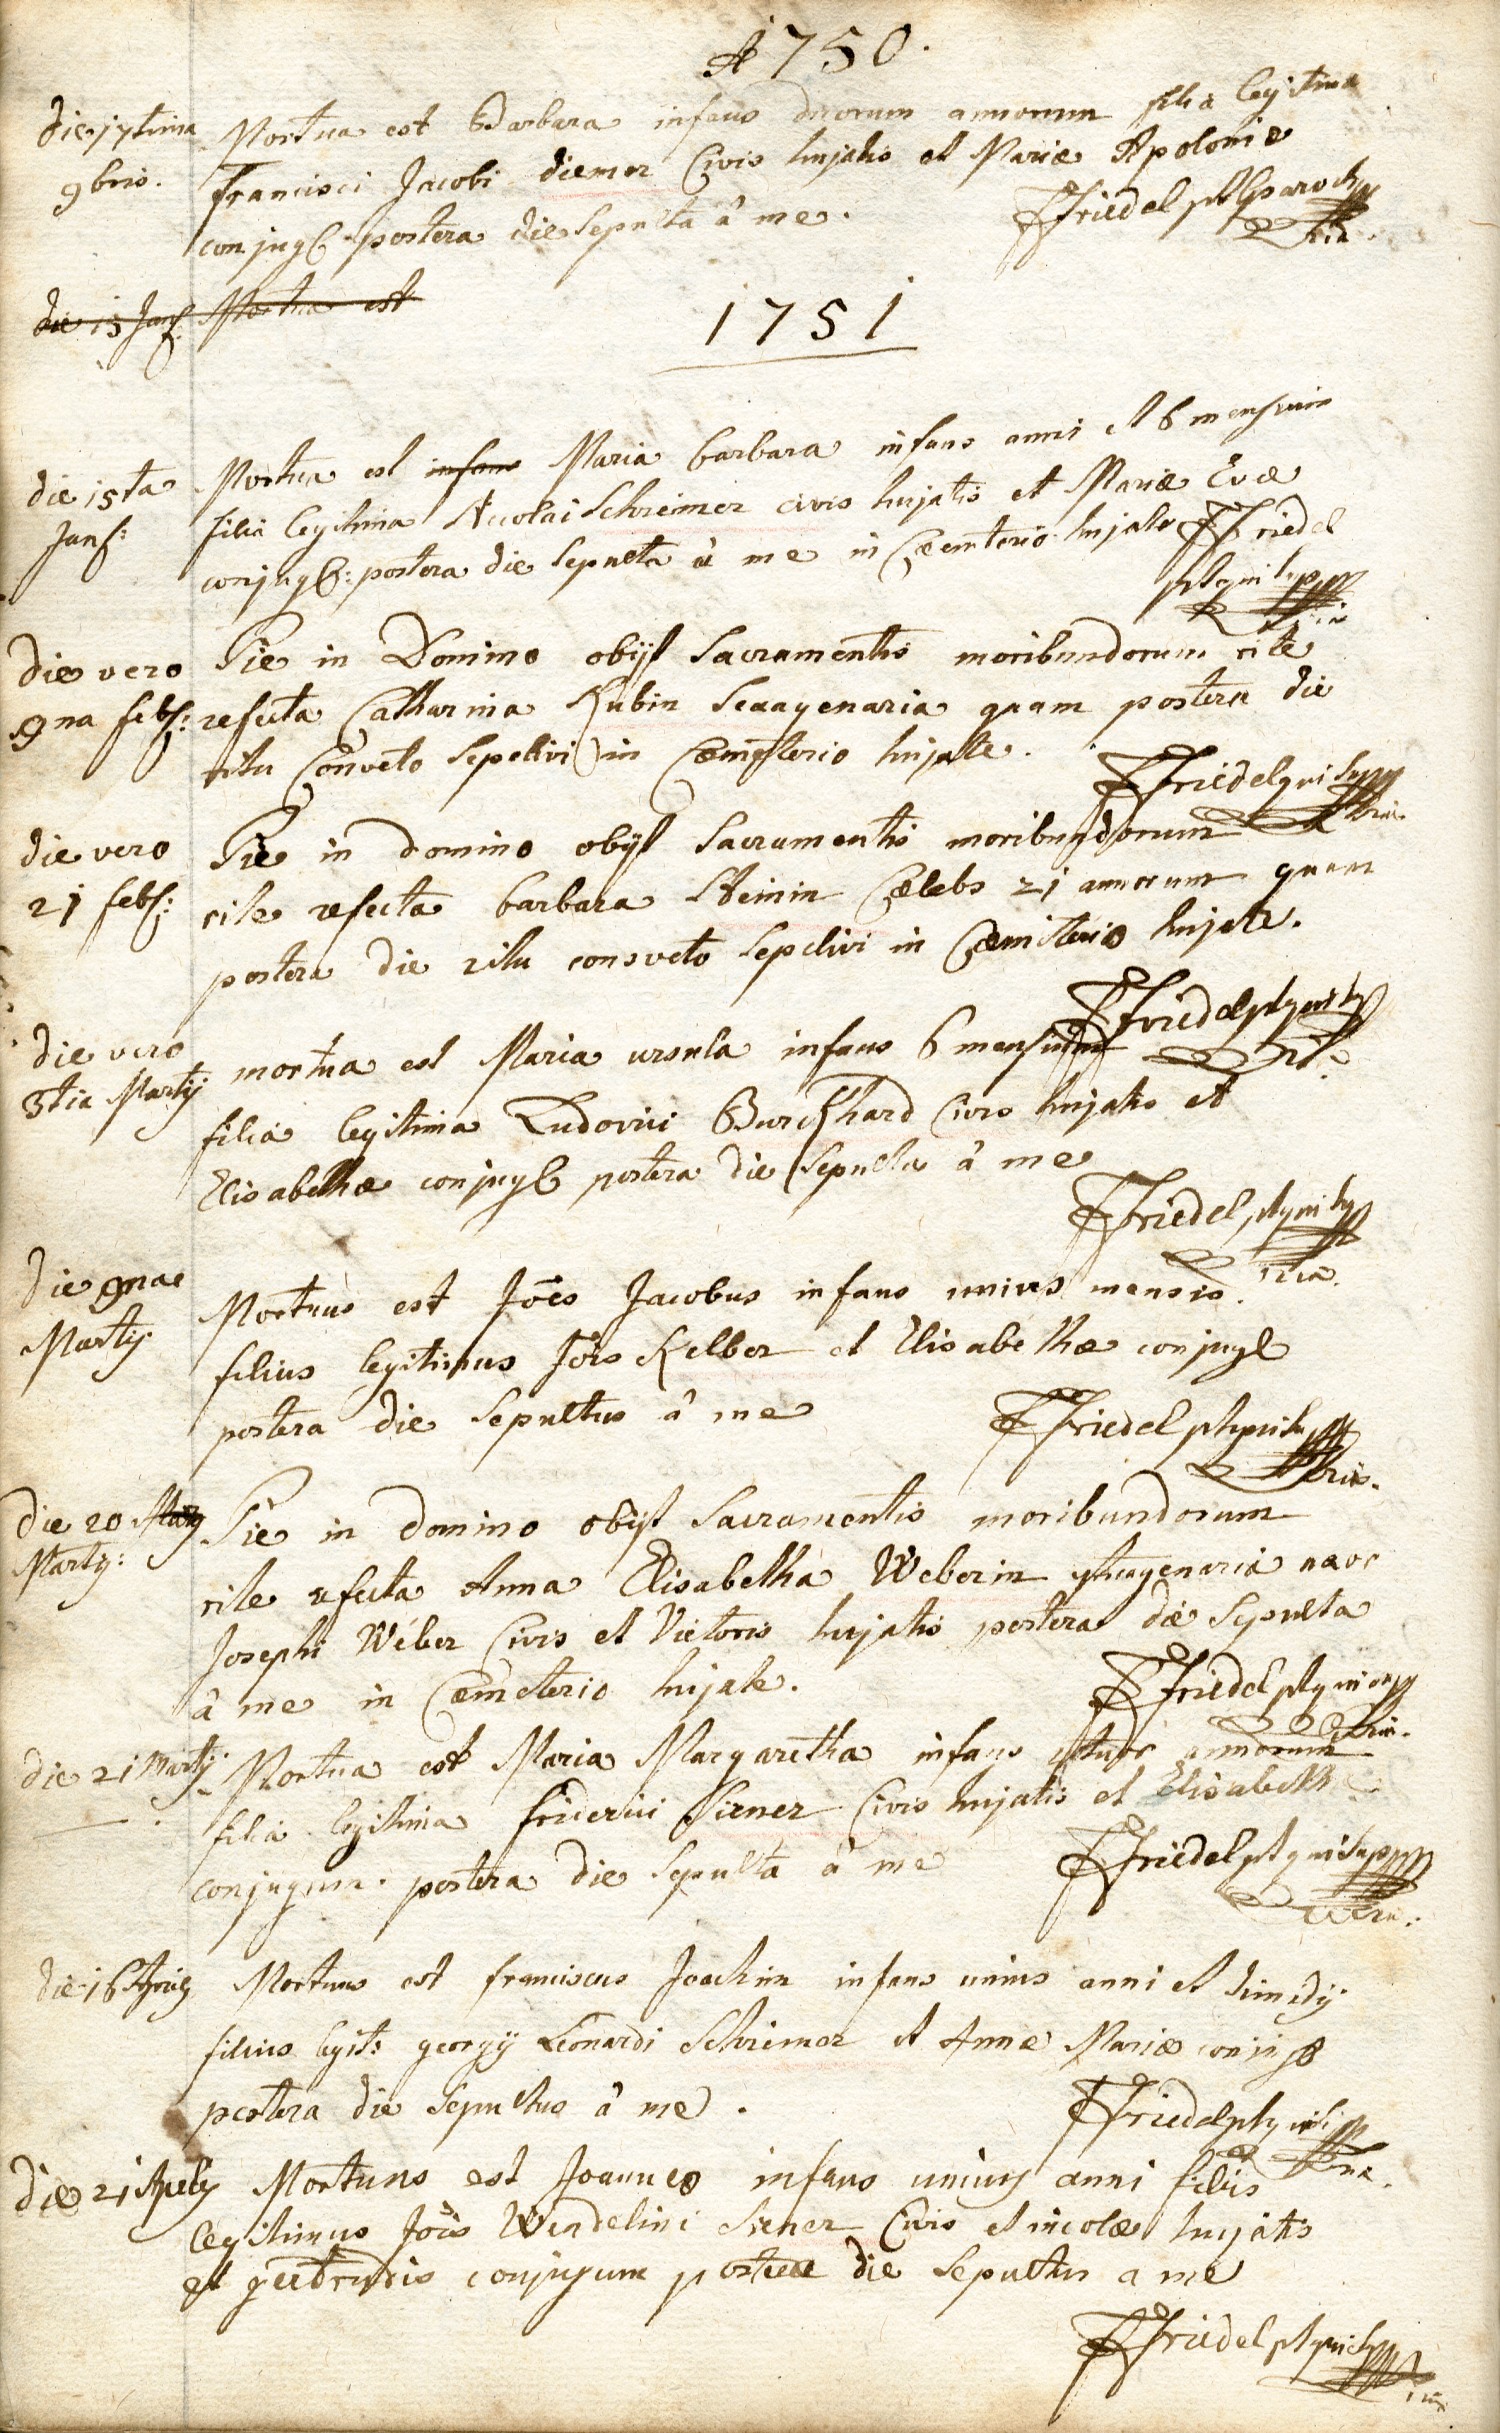 A 1750.
die 17tima Mortua est Barbara infans duorum annorum filia legitima
9bris. Francisci Jacobi diemer Civis hujatis et Mariæ Apoloniæ
conjug: postera die sepulta à me. FFriedel pt parochus
die 15 Jan: Mortua est
1751
die 15ta Mortua est infans Maria barbara infans anni et 6 mensium
Jan: filia legitima Nicolai Schreiner civis hujatis et Mariæ Evæ
conjug: postera die sepulta à me in Cæmterio hujate FFriedel
pt qui supra
die vero Pie in Domino obijt Sacramentis moribundorum rite
9na feb: refecta Catharina Kubin Sexagenaria quam postera die
ritu Consveto sepelivi in Cæmeterio hujate.
FFriedel qui supra
die vero Pie in domino obijt Sacramentis moribundorum
21 feb: rite refecta barbara Steinin Cælebs 21 annorum quam
postera die ritu consveto sepelivi in Cæmiterio hujate.
FFriedel pt qui
die vero mortua est Maria ursula infans 6 mensium
3tia Martij filia legitima Ludovici Burckhard Civis hujatis et
Elisabethæ conjug postera die sepulta à me
FFriedel pt qui
die 9nae Mortuus est Jōes Jacobus infans unius mensis.
Martij filius legitimus Jōis Kelber et Elisabethæ conjug
postera die sepultus à me FFriedel pt qui
die 20 Pie in domino obijt Sacramentis moribundorum
Martij: rite refecta Anna Elisabetha Weberin
Josephi Wéber Civis et Vietoris hujatis postera die sepulta
à me in Cæmeterio hujate. FFriedel pt qui
die 21 Martij Mortua est Maria Margaretha infans annorum
filia legitima friderici Siener Civis hujatis et Elisabeth
conjugum. postera die sepulta à me FFriedel pt qui supra
die 16 Aprilis Mortuus est franciscus Joachim infans unius anni et dimidij
filius legit: georgij Leonardi Schreiner et Annæ Mariæ conjug
postera die sepultus à me. FFriedel pt qui
die 21 Mortuus est Joannes infans unius anni filius
legitimus Jōis Wendelini Siener Civis et incolæ hujatis
et gertrudis conjugum postera die sepultus a me
FFriedel pt qui